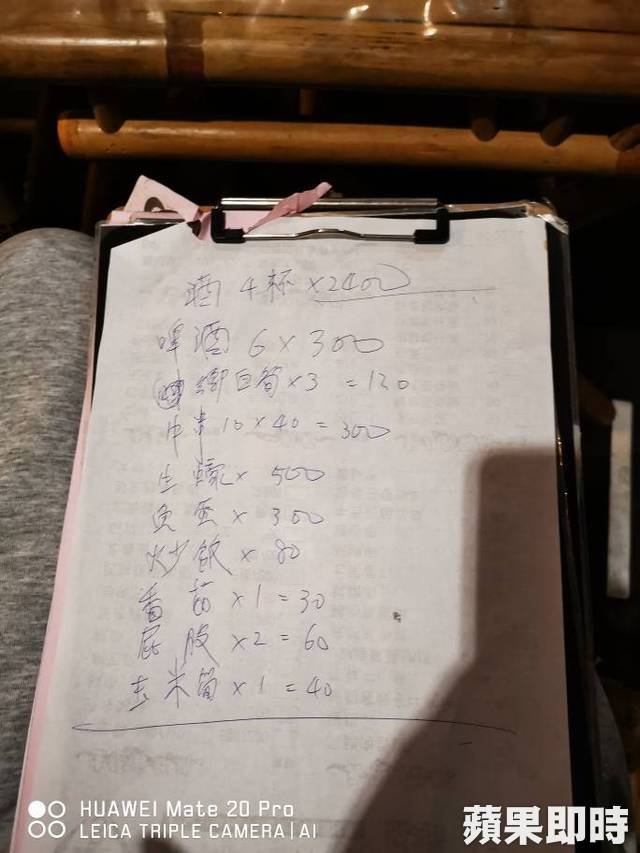 酒 4杯 x2400
啤酒 6 x 300
筊白筍 x3 =120
牛串 10 x 40 = 300
生蠔 x 500
魚蛋 x 300
炒飯 x 80
番茄 x1 =30
屁股 x2 =60
玉米筍 x1 =40
HUAWEI Mate 20 Pro
LEICA TRIPLE CAMERA | AI
蘋果即時